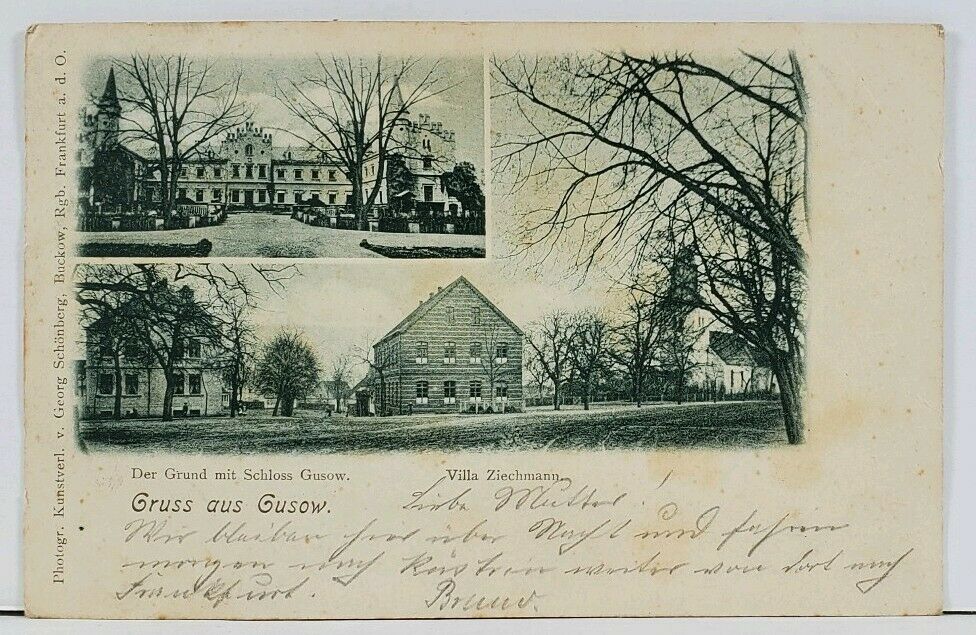 Photogr. Kunstverl. v. Georg Schönberg, Buckow, Rgb. Frankfurt a. d. O.
Der Grund mit Schloss Gusow.
Villa Ziechmann.
Gruss aus Gusow.
Liebe Mutter!
Wir bleiben hier über Nacht und fahren
morgen nach Küstrin weiter von dort nach
Frankfurt. Bruno.